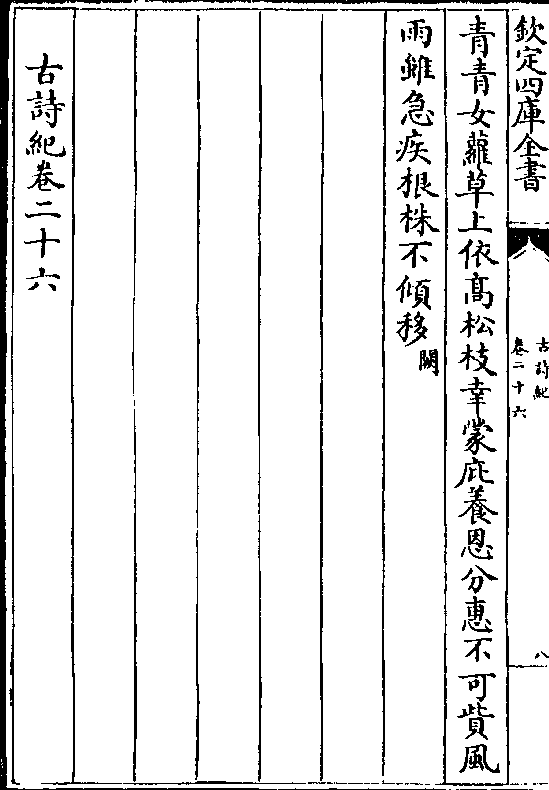 欽定四庫全書
古詩紀
卷二十六
八
青青女蘿草上依髙松枝幸蒙庇養恩分惠不可貲風
雨雖急疾根株不傾移闕
古詩紀卷二十六